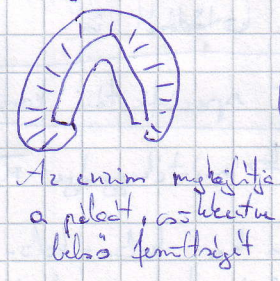 Az enzim meghajlítja
a pálcát, csökkentve
belső feszültségét